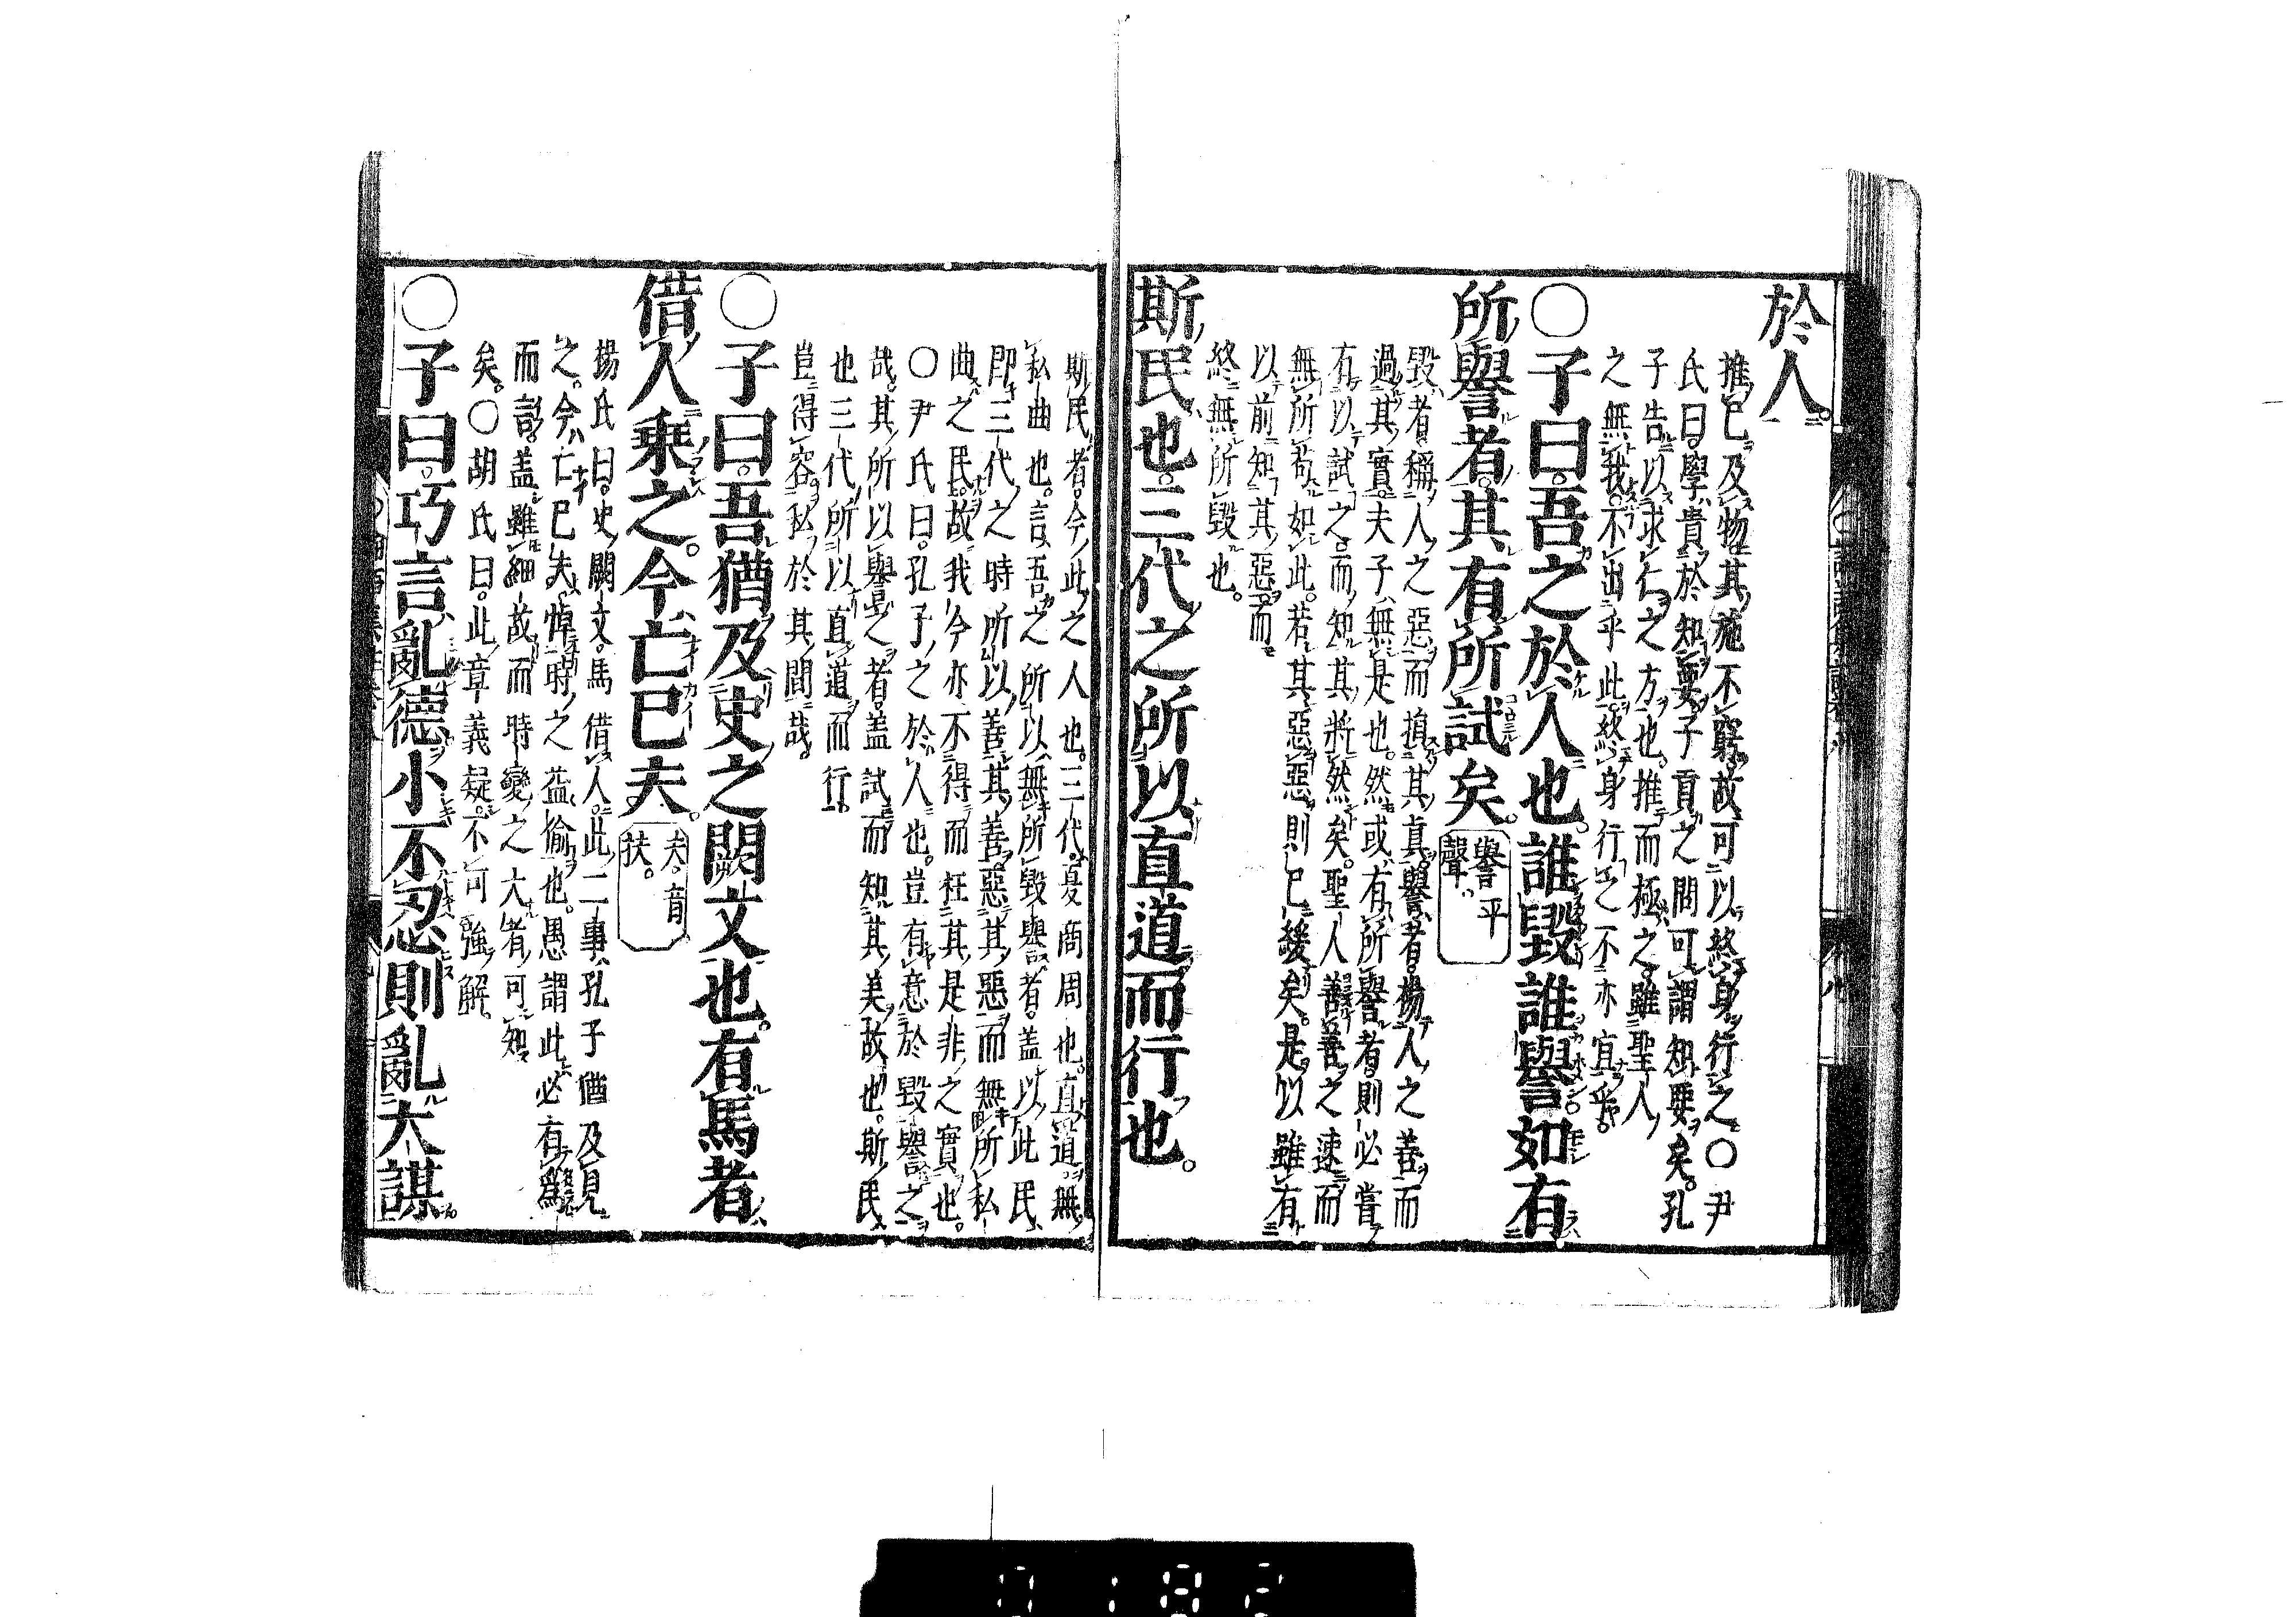 於人。
推己及物其施不窮。故可以終身行之〇尹
氏曰。學貴於知要。子貢之問。可謂知要矣。孔
子告以求仁之方也。推而極之。雖聖人
之無我。不出乎此。終身行之。不亦宜乎。
〇子曰。吾之於人也。誰毀誰譽。如有
所譽者。其有所試矣。譽平聲。
毀者。稱人之惡而損其真。譽者。揚人之善而
過其實。夫子無是也。然或有所譽者。則必嘗
有以試之。而知其將然矣。聖人善善之速。而
無所苟如此。若其惡惡。則已緩矣。是以雖有
以前知其惡。而
終無所毀也。
斯民也。三代之所以直道而行也。
斯民者。今此之人也。三代。夏商周也。直道。無
私曲也。言吾之所以無所毀譽者。蓋以此民
即三代之時所以善其善。惡其惡。而無所私
曲之民。故我今亦不得而枉其是非之實也。
〇尹氏曰。孔子之於人也。豈有意於毀譽之
哉。其所以譽之者。蓋試而知其美故也。斯民
也三代所以直道而行。
豈得容私於其間哉。
〇子曰。吾猶及史之闕文也。有馬者
借人乘之。今亡已夫。夫。音扶。
楊氏曰。史闕文。馬借人。此二事孔子猶及見
之。今亡已夫。悼時之益偷也。愚謂此必有為
而言。蓋雖細故。而時變之大者可知
矣。〇胡氏曰。此章義疑。不可強解。
〇子曰。巧言亂德。小不忍則亂大謀。